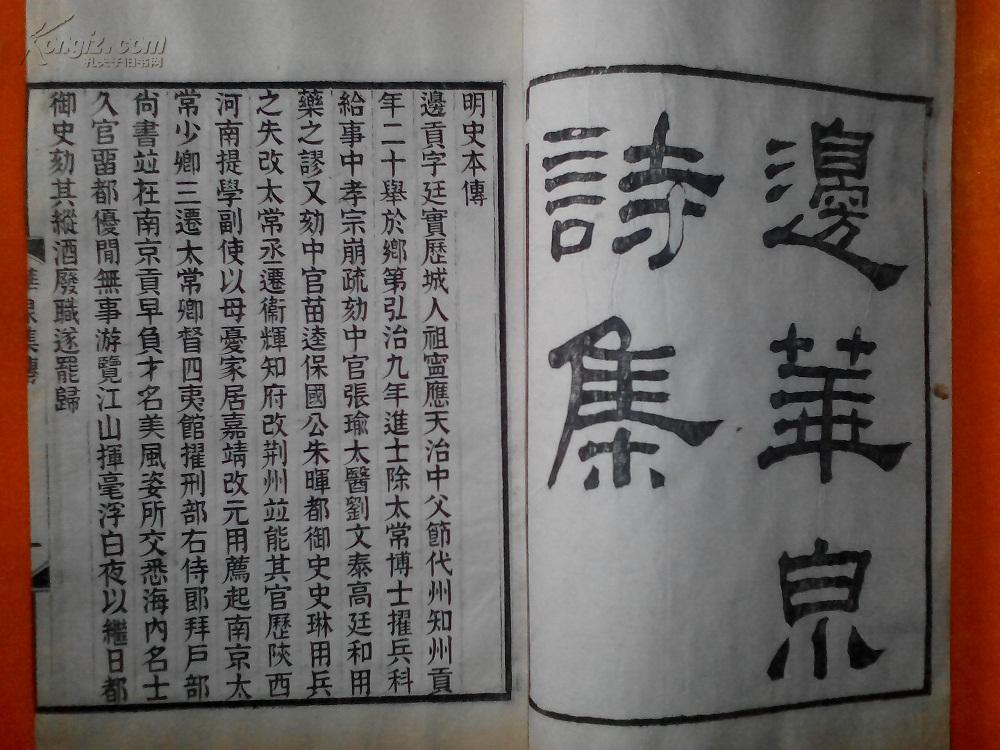 邊華泉
詩集
明史本傳
邊貢字廷實歷城人祖寧應天治中父節代州知州貢
年二十舉於鄉第弘治九年進士除太常博士擢兵科
給事中孝宗崩疏劾中官張瑜太醫劉文泰高廷和用
藥之謬又劾中官苗逵保國公朱暉都御史史琳用兵
之失改太常丞遷衞輝知府改荆州並能其官歷陝西
河南提學副使以母憂家居嘉靖改元用薦起南京太
常少卿三遷太常卿督四夷館擢刑部右侍郎拜戶部
尙書竝在南京貢早負才名美風姿所交悉海內名士
久官留都優閒無事游覽江山揮毫浮白夜以繼日都
御史劾其縱酒廢職遂罷歸
華泉集傳
一
Kongfz.com
孔夫子旧书网